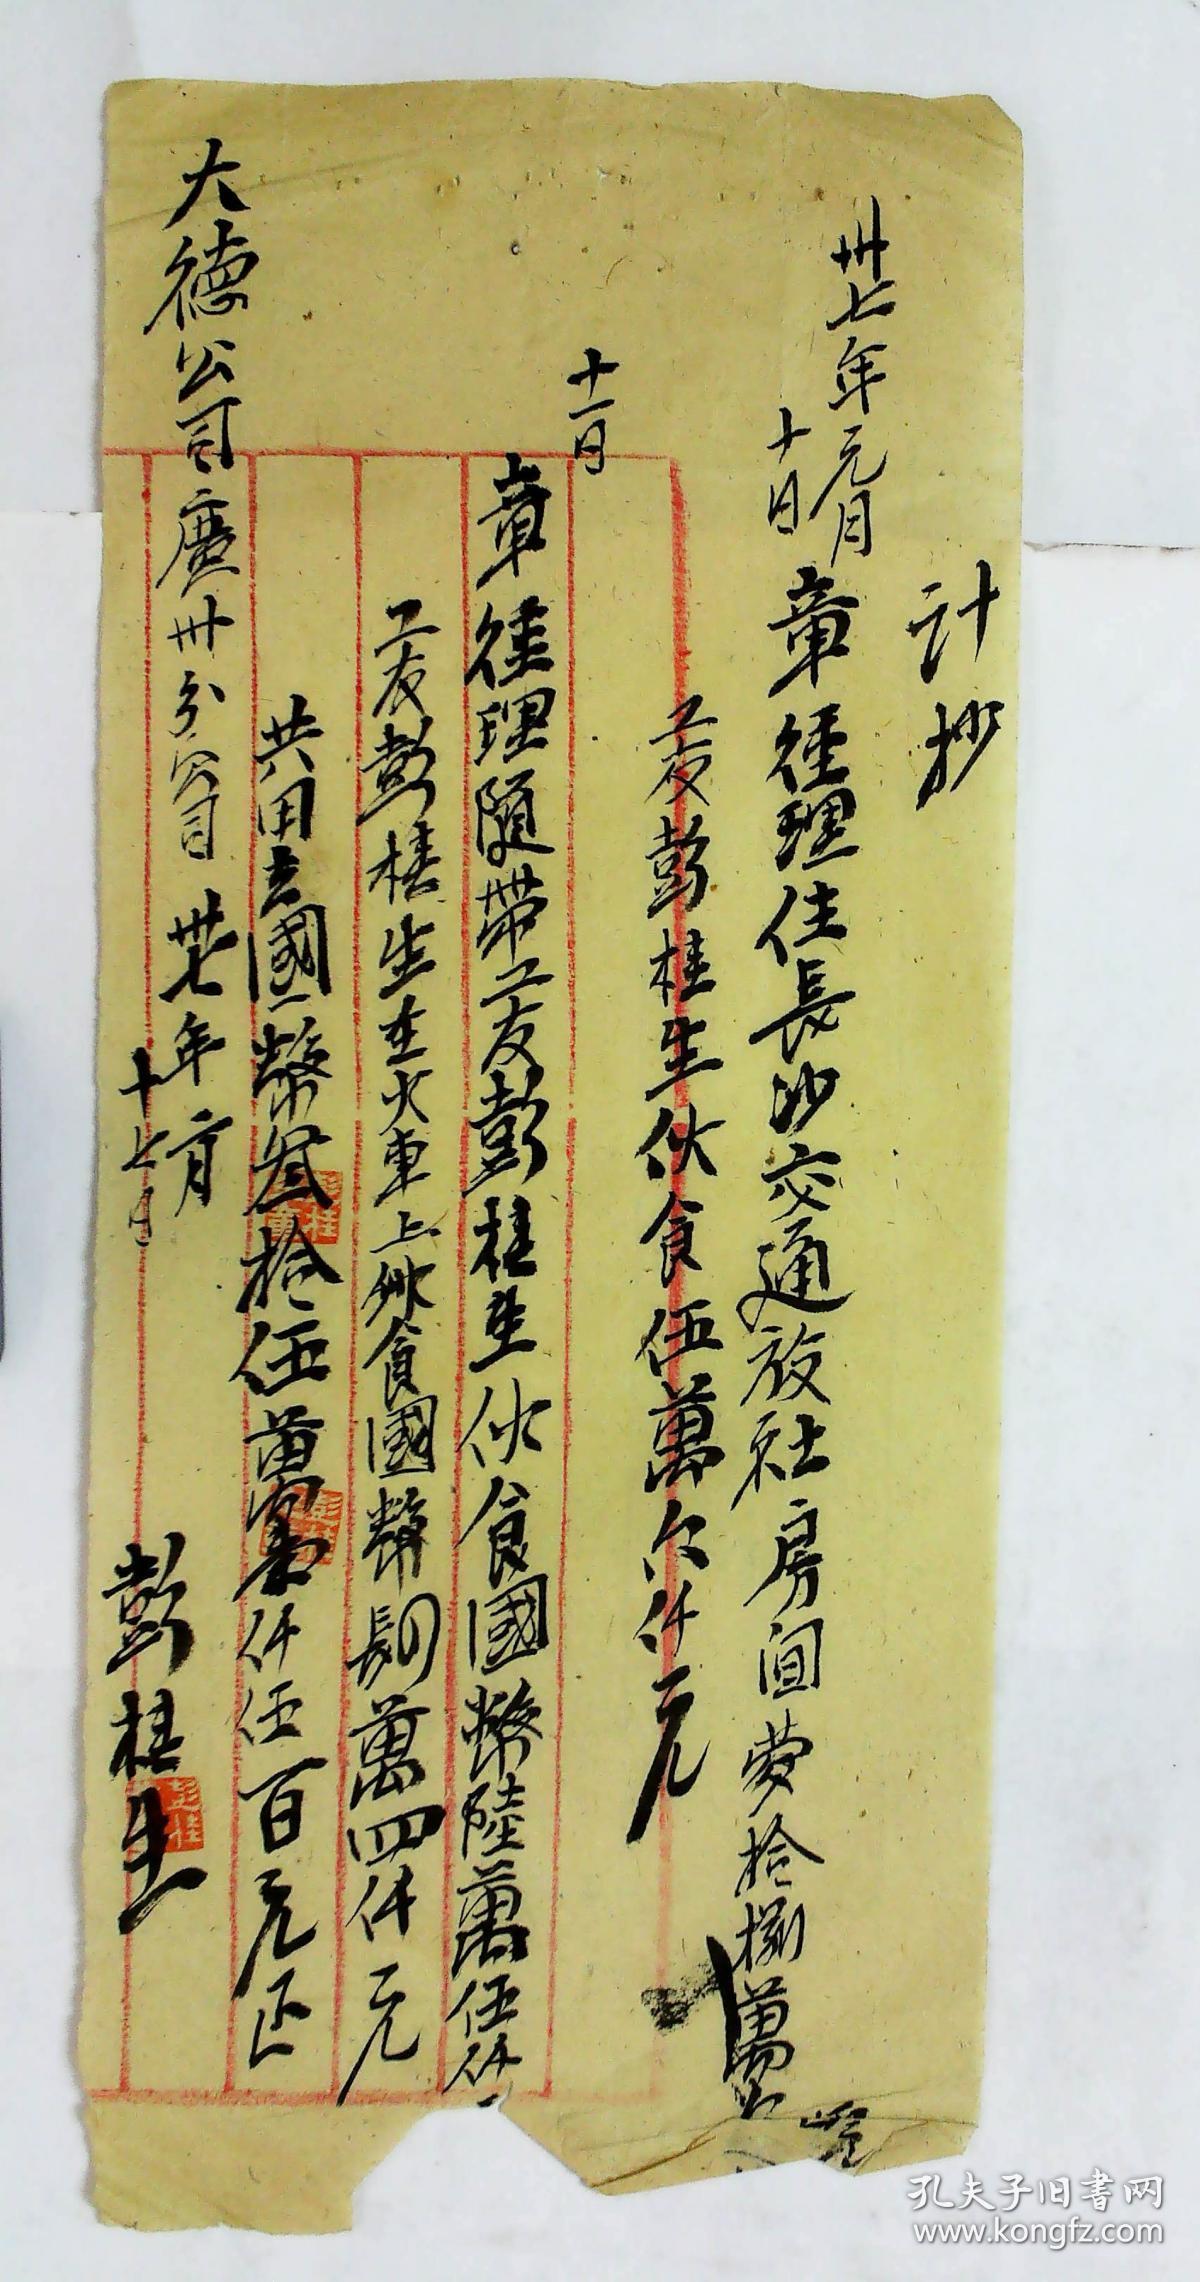 計抄
卅七年元月
十日
章経理住長沙交通旅社房间费拾捌萬
工友彭桂生伙食伍萬六仟元
十一日
章経理随带工友彭桂生伙食國幣陸萬伍仟
工友彭桂生在火車上伙食國幣捌萬四仟元
共用去國幣叁拾伍萬 仟伍百元正
大德公司廣州分公司 卅七年 月
十七日
彭桂生
孔夫子旧書网
www.kongfz.com